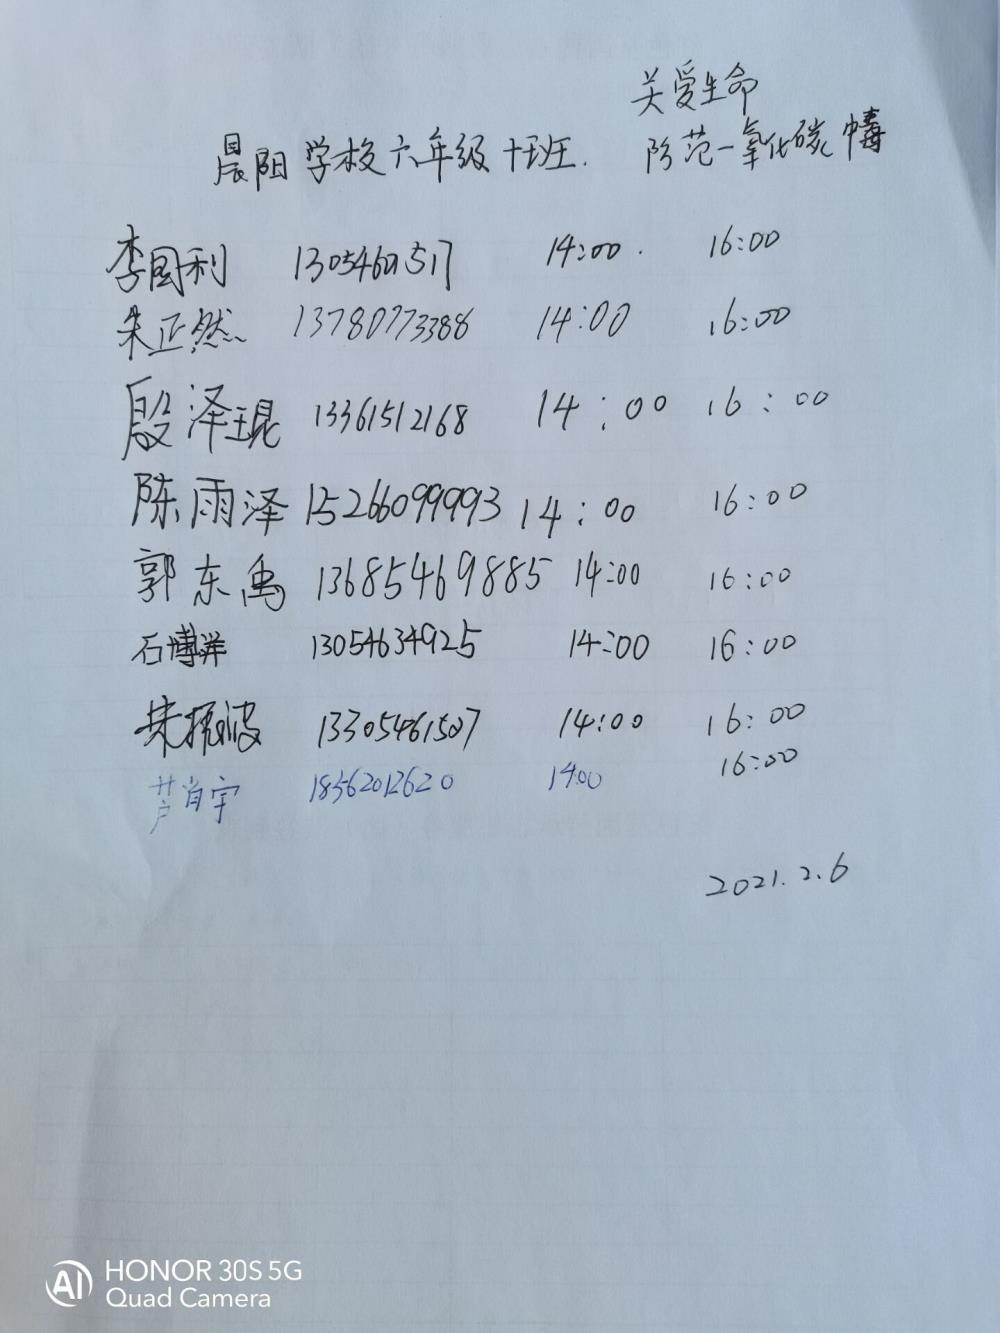 关爱生命
晨阳学校六年级十班. 防范一氧化碳中毒
李国利 14:00. 16:00
朱正然 13780773388 14:00 16:00
殷泽琨 13361512168 14:00 16:00
陈雨泽 15266099993 14:00 16:00
郭东禹 13685469885 14:00 16:00
石博洋 13054634925 14:00 16:00
朱振波 13305461507 14:00 16:00
芦肖宇 18562012620 14:00 16:00
2021.2.6
AI HONOR 30S 5G
Quad Camera